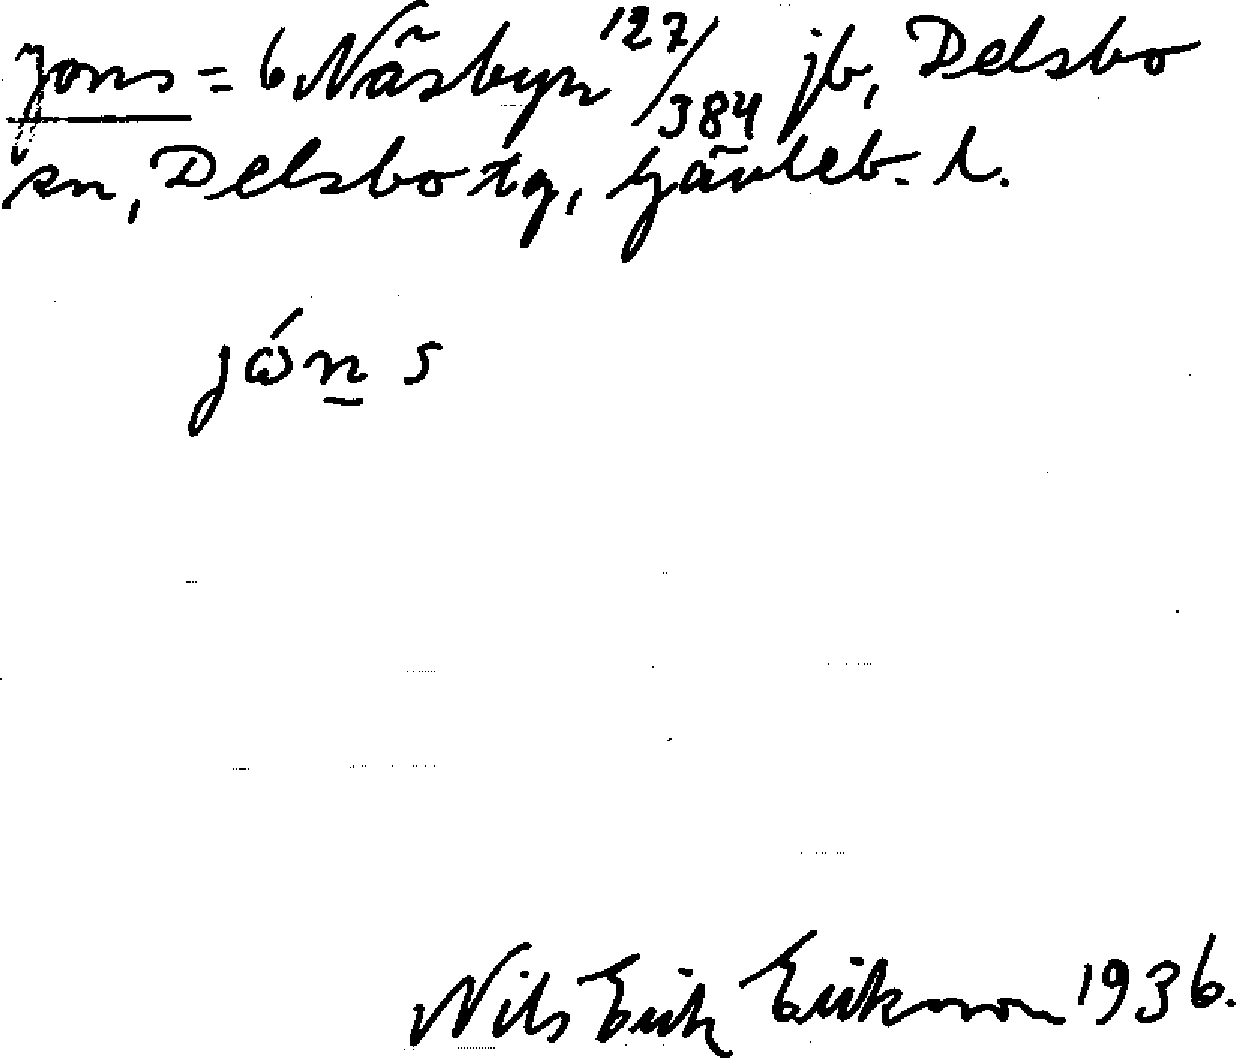 Jons = 6 Näsbyn 127/384 jb, Delsbo
sn, Delsbo tg, Gävleb. l.
jón s
Nils Erik Erikson 1936.